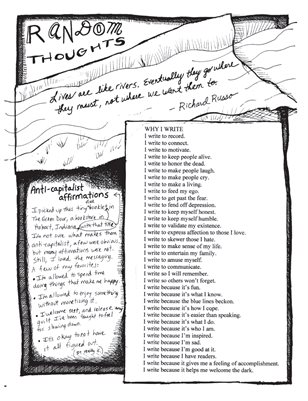 RANDOM
THOUGHTS
Lives are like rivers. Eventually they go where
they must, not where we want them to.
- Richard Russo
Anti-capitalist
affirmations
I picked up this tiny booklet in
The Green Door, a bookstore in
Hobart, Indiana, with that title.
I'm not sure what makes them
anti-capitalist, a few were obvious,
but many affirmations were not.
Still, I loved the messaging.
A few of my favorites:
• I'm allowed to spend time
doing things that make me happy
• I'm allowed to enjoy something
without monetizing it.
• I welcome rest, and release any
guilt I've been taught to feel
for slowing down.
• It's okay to not have
it all figured out.
WHY I WRITE
I write to record.
I write to connect.
I write to motivate.
I write to keep people alive.
I write to honor the dead.
I write to make people laugh.
I write to make people cry.
I write to make a living.
I write to feed my ego.
I write to get past the fear.
I write to fend off depression.
I write to keep myself honest.
I write to keep myself humble.
I write to validate my existence.
I write to express affection to those I love.
I write to skewer those I hate.
I write to make sense of my life.
I write to entertain my family.
I write to amuse myself.
I write to communicate.
I write so I will remember.
I write so others won't forget.
I write because it's fun.
I write because it's what I know.
I write because the blue lines beckon.
I write because it's how I cope.
I write because it's easier than speaking.
I write because it's what I do.
I write because it's who I am.
I write because I'm inspired.
I write because I'm sad.
I write because I'm good at it.
I write because I have readers.
I write because it gives me a feeling of accomplishment.
I write because it helps me welcome the dark.